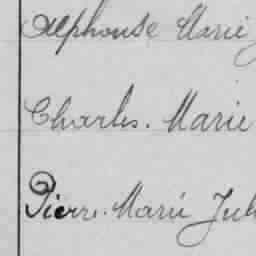 Alphonse Marie
Charles. Marie
Pierre. Marie Jul